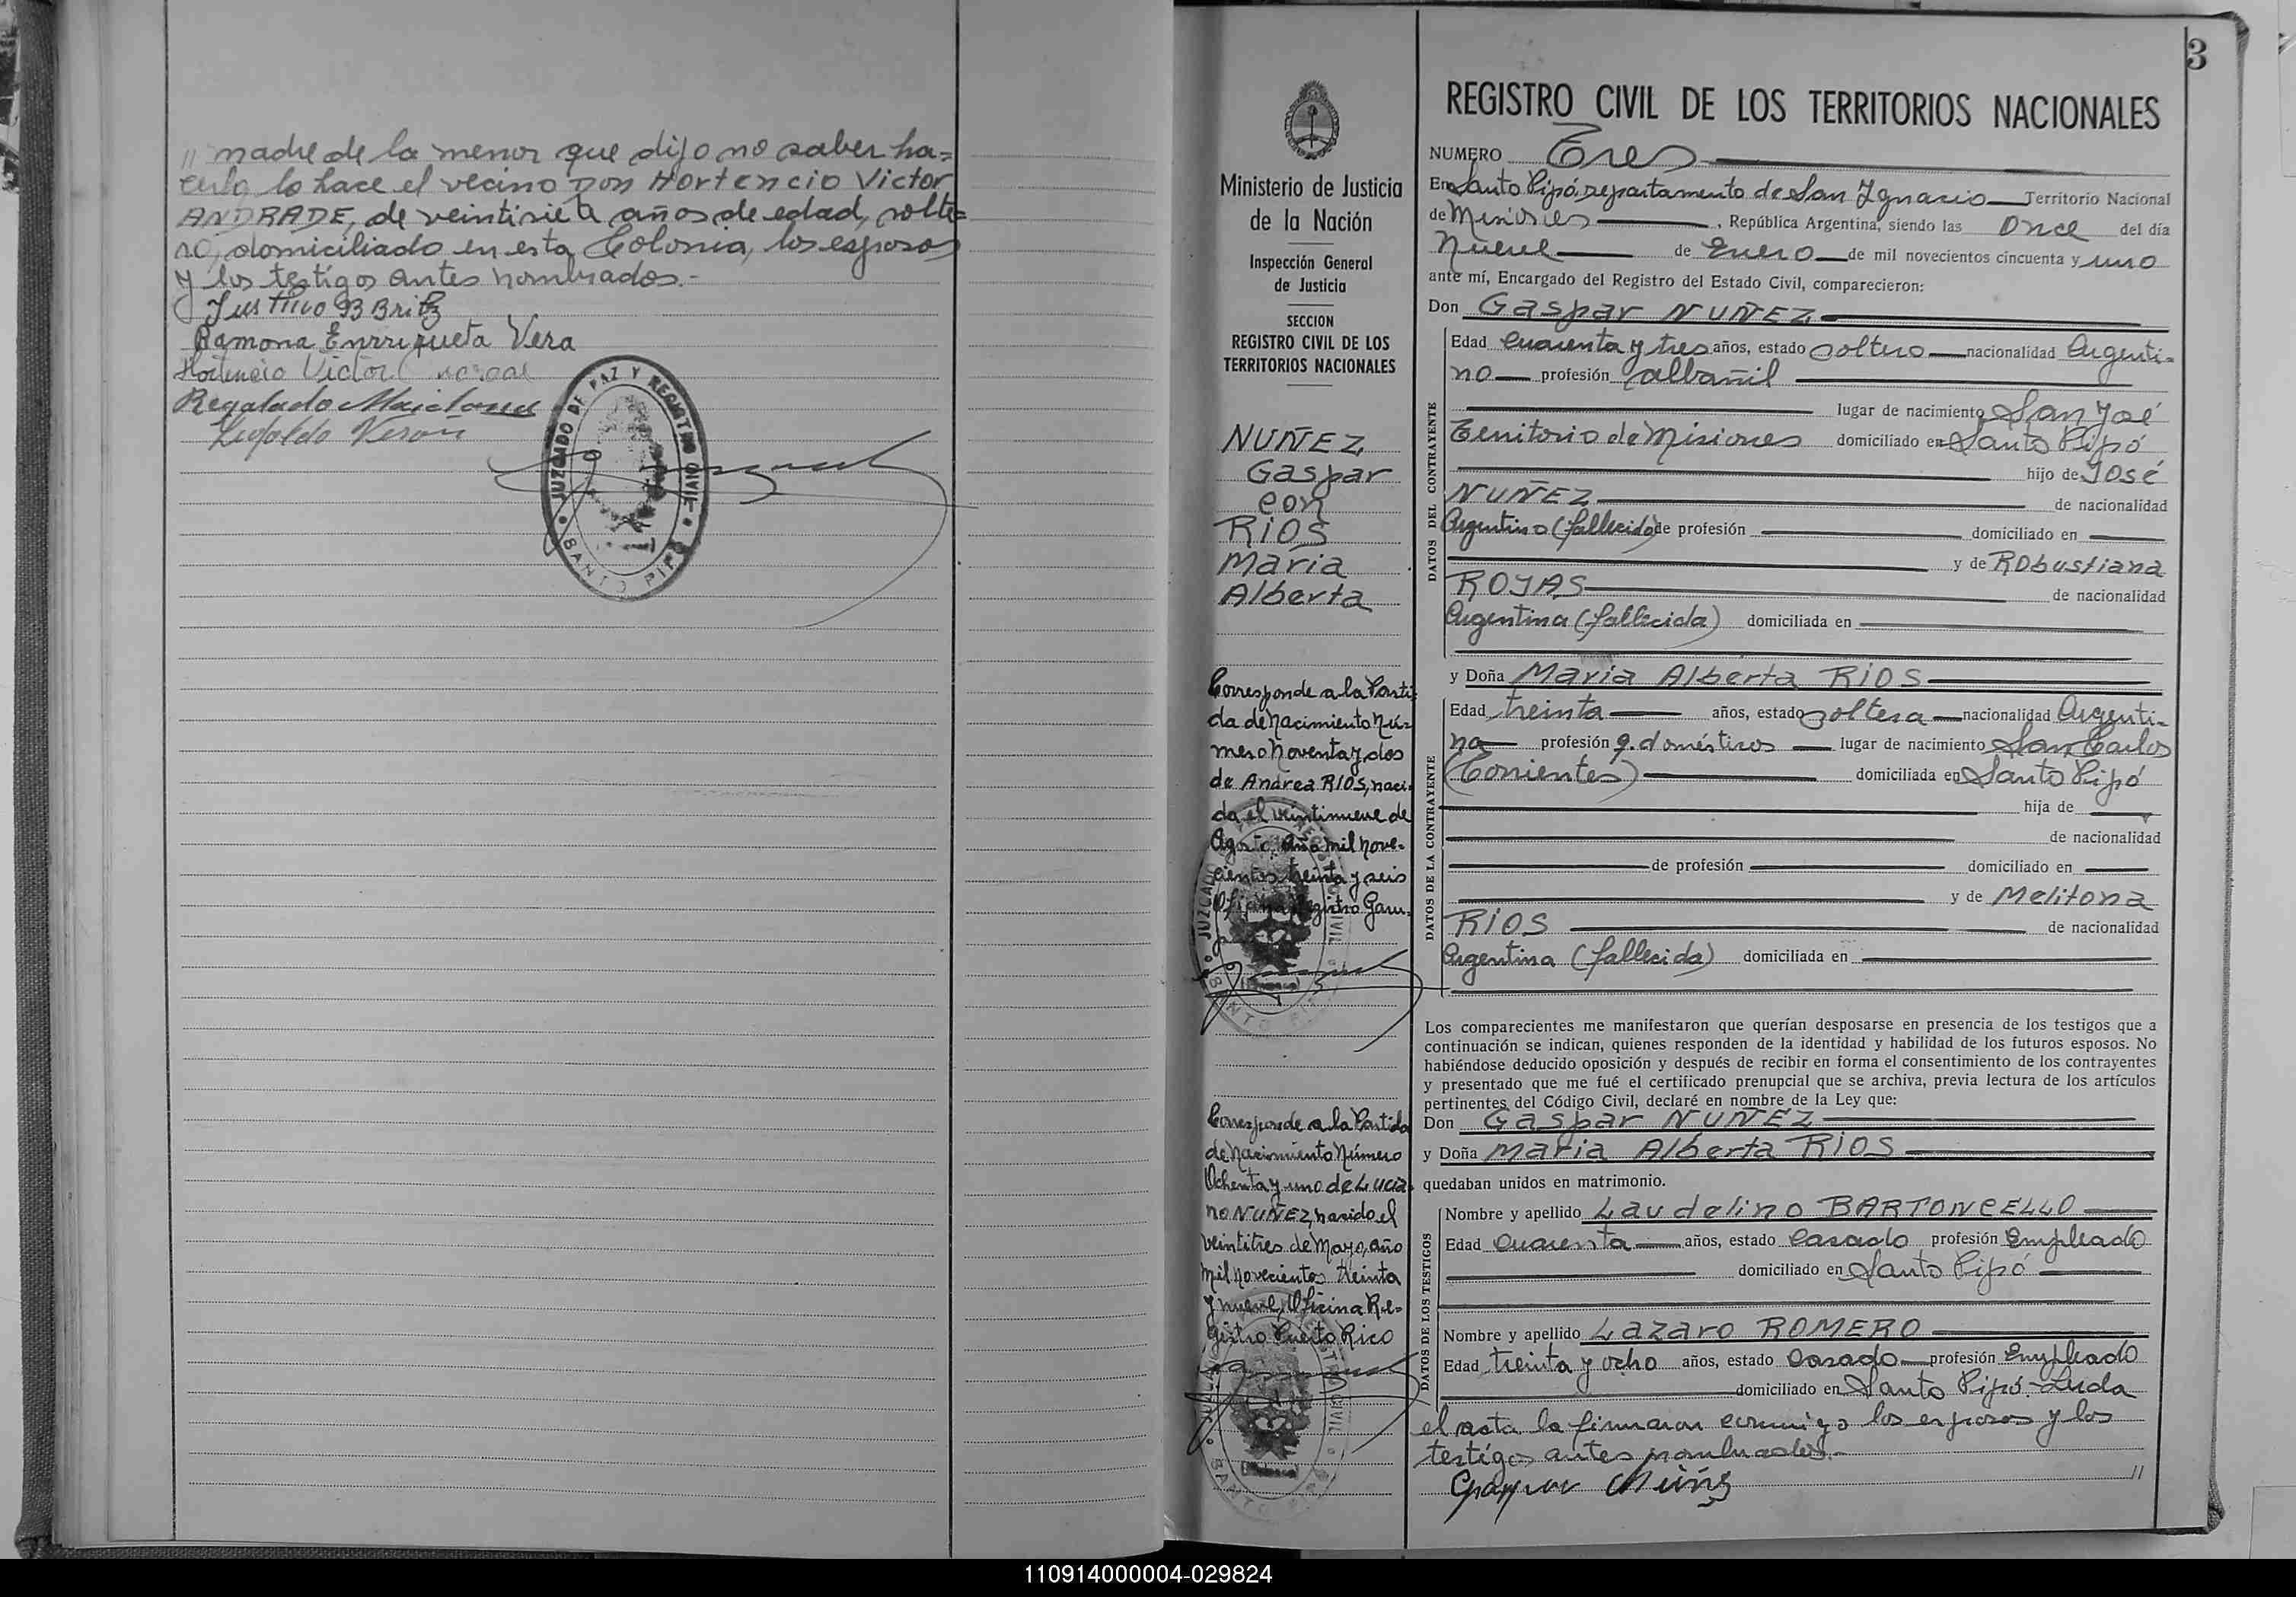 // madre de la menor que dijo no saber ha=
cerlo lo hace el vecino Don Hortencio Victor
ANDRADE, de veintisiete años de edad, solte=
ro, domiciliado en esta Colonia, los esposos
y los testigos antes nombrados.-
Justino B Britz
Ramona Enrriqueta Vera
Hortencio Victor
Regalado
Leopoldo Veron
JUZGADO DE PAZ Y REGISTRO CIVIL
SANTO PIPO
3
Ministerio de Justicia
de la Nación
Inspección General
de Justicia
SECCION
REGISTRO CIVIL DE LOS
TERRITORIOS NACIONALES
NUÑEZ
Gaspar
con
RIOS
Maria
Alberta
Corresponde a la Parti-
da de Nacimiento Nú-
mero Noventa y dos
de Andrea RIOS, naci-
da el veintinueve de
Agosto, año mil nove-
cientos treinta y seis
Oficina Registro Garu-
Corresponde a la Partida
de Nacimiento Número
Ochenta y uno de Lucia-
no NUÑEZ, nacido el
veintitres de Mayo, año
mil novecientos treinta
y nueve, Oficina Re-
gistro Puerto Rico
REGISTRO CIVIL DE LOS TERRITORIOS NACIONALES
NUMERO Tres
En Santo Pipó, departamento de San Ignacio Territorio Nacional
de Misiones, República Argentina, siendo las Once del día
Nueve de Enero de mil novecientos cincuenta y uno
ante mí, Encargado del Registro del Estado Civil, comparecieron:
Don Gaspar NUÑEZ
DATOS DEL CONTRAYENTE
Edad Cuarenta y tres años, estado soltero nacionalidad Argenti-
no profesión albañil
lugar de nacimiento San José
Territorio de Misiones domiciliado en Santo Pipó
hijo de José
NUÑEZ de nacionalidad
Argentino (fallecido) de profesión domiciliado en
y de Robustiana
ROJAS de nacionalidad
Argentina (fallecida) domiciliada en
y Doña Maria Alberta RIOS
DATOS DE LA CONTRAYENTE
Edad treinta años, estado soltera nacionalidad Argenti-
na profesión q. domésticos lugar de nacimiento San Carlos
(Corrientes) domiciliada en Santo Pipó
hija de
de nacionalidad
de profesión domiciliado en
y de Melitona
RIOS de nacionalidad
Argentina (fallecida) domiciliada en
Los comparecientes me manifestaron que querían desposarse en presencia de los testigos que a
continuación se indican, quienes responden de la identidad y habilidad de los futuros esposos. No
habiéndose deducido oposición y después de recibir en forma el consentimiento de los contrayentes
y presentado que me fué el certificado prenupcial que se archiva, previa lectura de los artículos
pertinentes del Código Civil, declaré en nombre de la Ley que:
Don Gaspar NUÑEZ
y Doña Maria Alberta RIOS
quedaban unidos en matrimonio.
DATOS DE LOS TESTIGOS
Nombre y apellido Laudelino BARTONCELLO
Edad Cuarenta años, estado Casado profesión Empleado
domiciliado en Santo Pipó
Nombre y apellido Lazaro ROMERO
Edad treinta y ocho años, estado Casado profesión Empleado
domiciliado en Santo Pipó-Leida
el acta la firmaron conmigo los esposos y los
testigos antes nombrados.-
//
Gaspar Nuñez
110914000004-029824